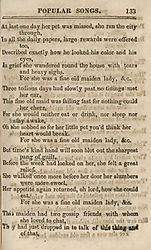 POPULAR SONGS. 133
At last one day her pet was missed, she ran the city
through,
In all the daily papers, large rewards were offered
too,
Described exactly how he looked his color and his
eyes,
In grief she wandered round the house with tears
and heavy sighs.
For she was a fine old maiden lady, &c.
Three tedious days had slowly past no tidings met
her ear,
This fine old maid was failing fast for nothing could
her cheer,
For she would neither eat or drink, nor sleep nor
take awake,
Oh she sobbed so for her little pet you'd think her
heart would break.
For she was a fine old maiden lady, &c.
But time's kind hand will soon blot out the sharpest
pang of guilt,
Before the week had looked on her, she felt a great
relief,
She walked once more before her door her slumbers
were more sweet,
Her appetite again returned, oh lord, how she could
eat.
For she was a fine old maiden lady, &c.
This maiden and two gossip friends with whom
she loved to chat,
They had just dropped in to talk of this thing and
of that,